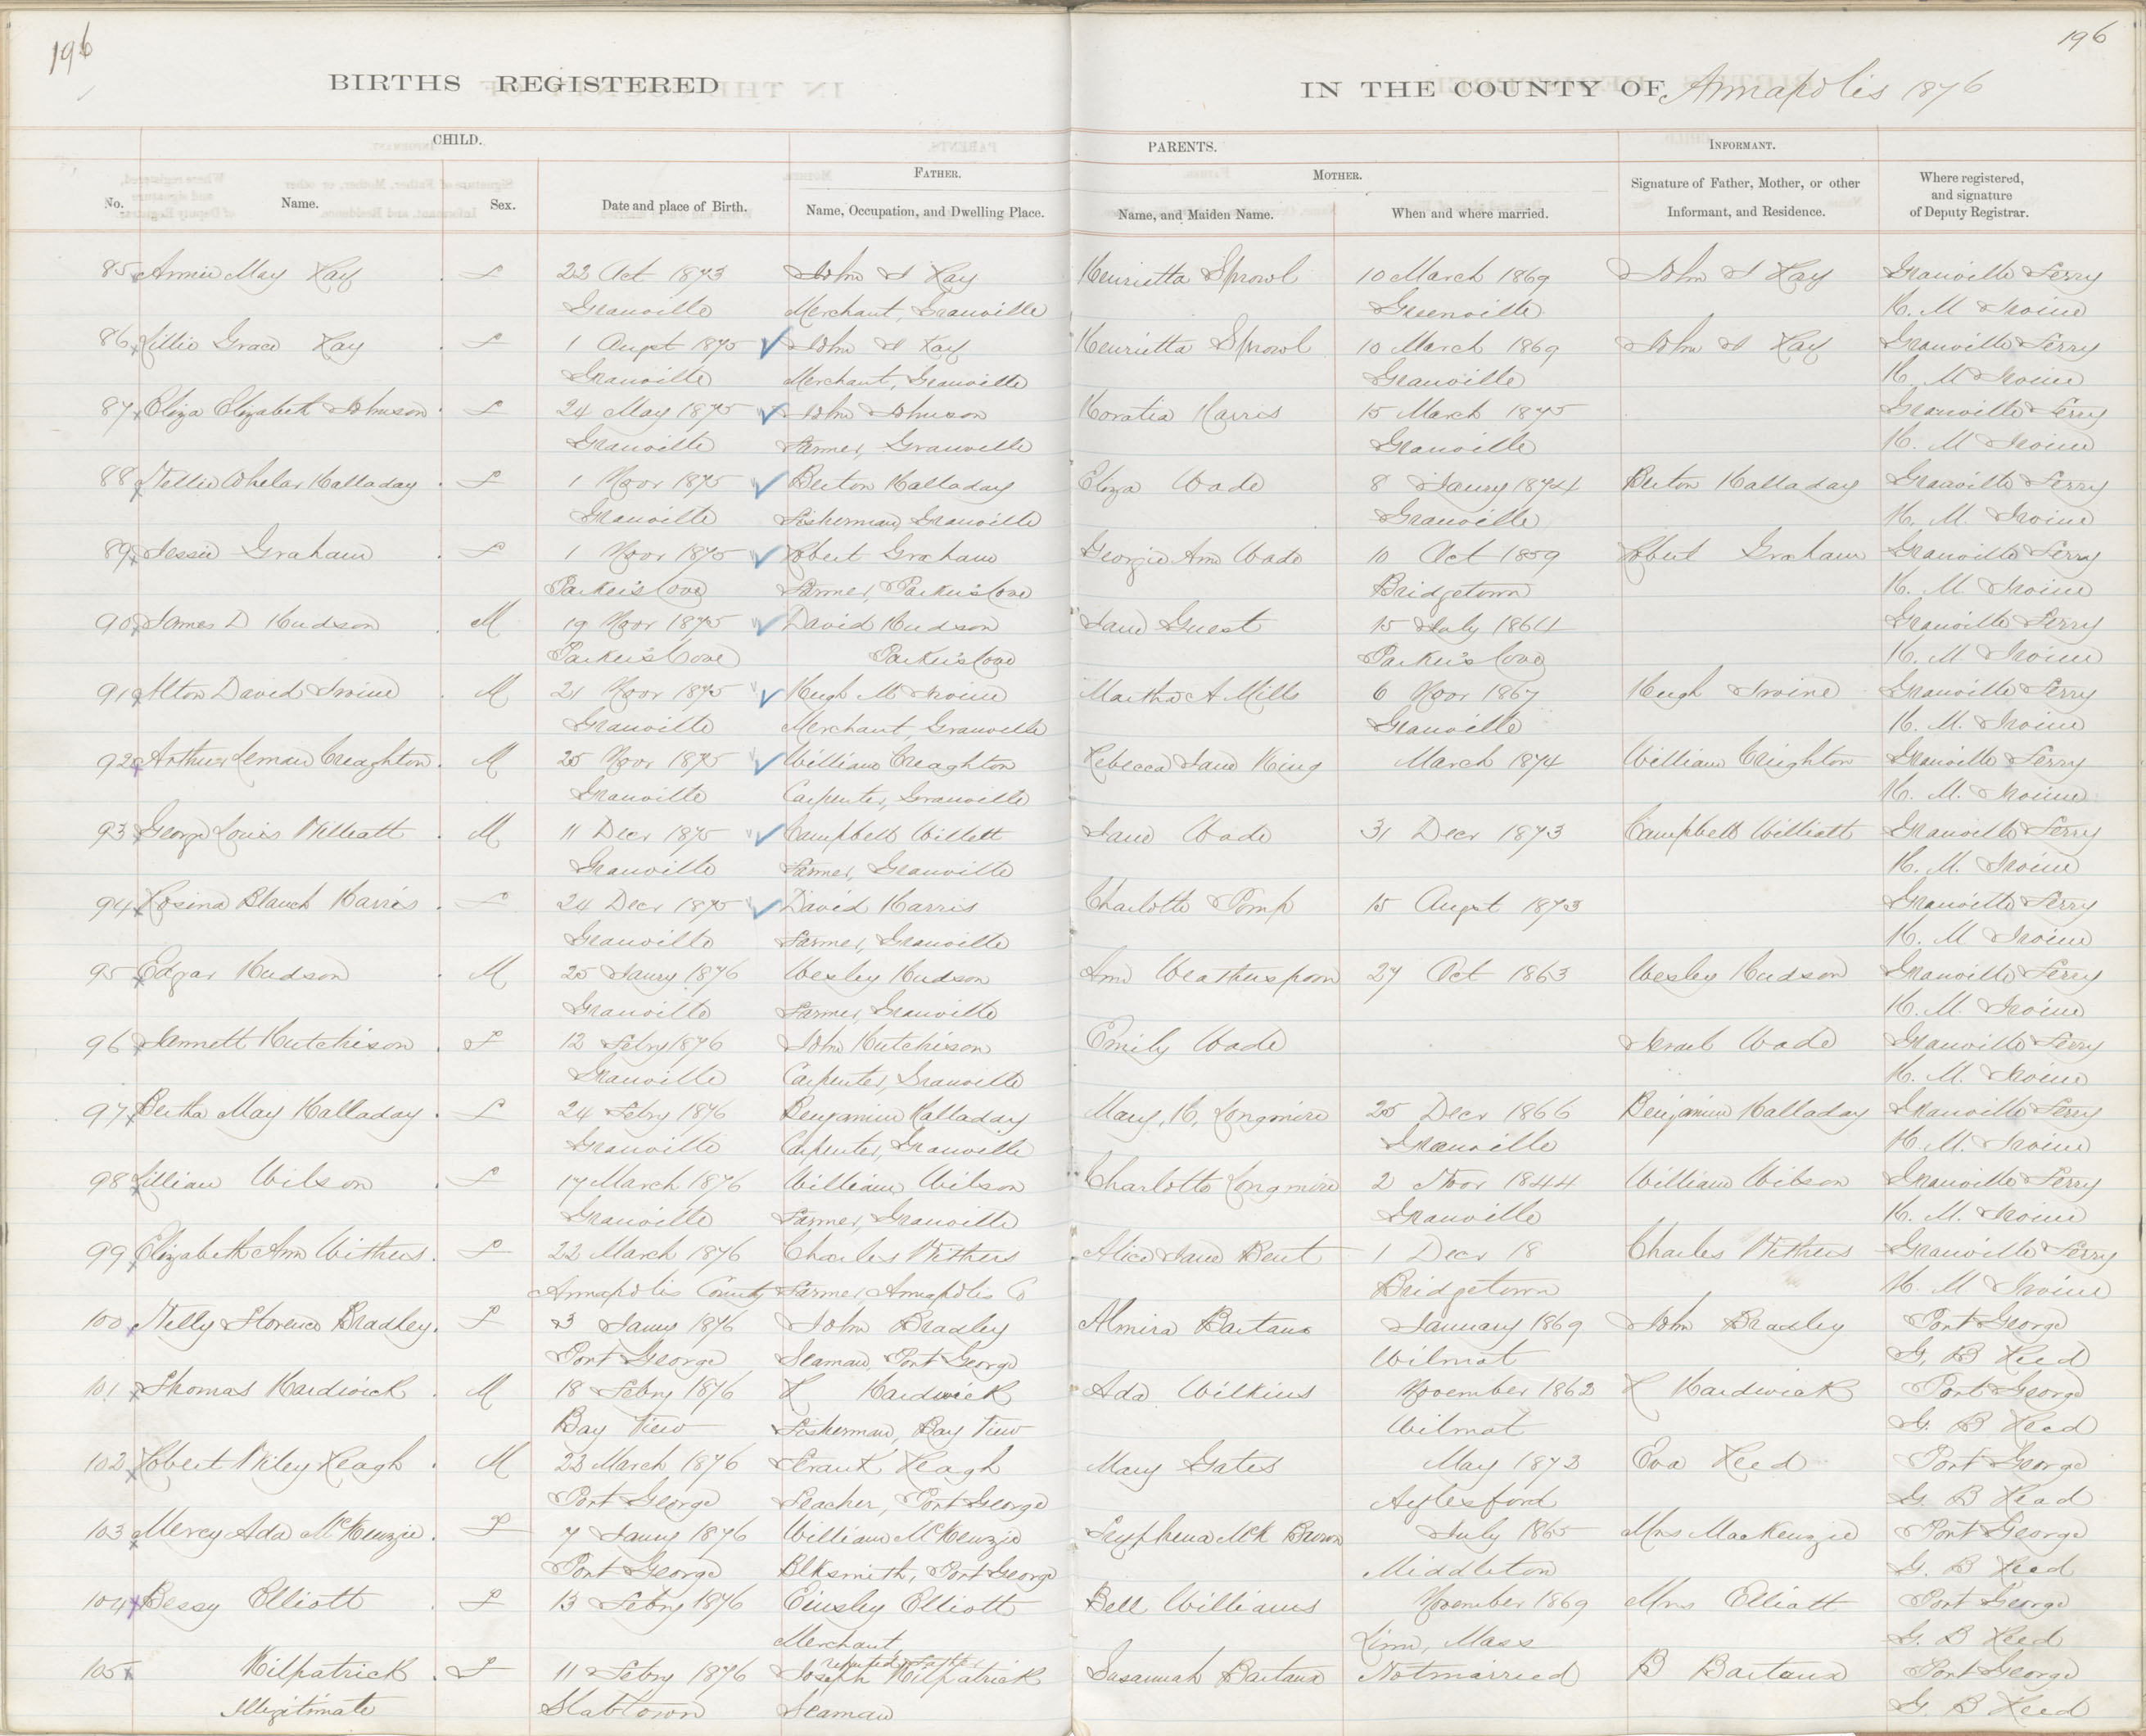 196
196
BIRTHS REGISTERED
IN THE COUNTY OF Annapolis 1876
CHILD.
PARENTS.
INFORMANT.
FATHER.
MOTHER.
No. Name. Sex. Date and place of Birth. Name, Occupation, and Dwelling Place. Name, and Maiden Name. When and where married. Signature of Father, Mother, or other Informant, and Residence. Where registered, and signature of Deputy Registrar.
85 Annie May Ray F 22 Oct 1873 John I Ray Henrietta Sprowl 10 March 1869 John I Ray Granville Ferry
Granville Merchant, Granville Greenville H. M Irvine
86 Lillie Grace Ray F 1 Augst 1875 John I Ray Henrietta Sprowl 10 March 1869 John I Ray Granville Ferry
Granville Merchant, Granville Granville H. M Irvine
87 Eliza Elizabeth Johnson F 24 May 1875 John Johnson Horatia Harris 15 March 1875 Granville Ferry
Granville Farmer, Granville Granville H. M Irvine
88 Nellie Whelar Halladay F 1 Novr 1875 Burton Halladay Eliza Wade 8 Janry 1874 Burton Halladay Granville Ferry
Granville Fisherman, Granville Granville H. M. Irvine
89 Jessie Graham F 1 Novr 1875 Robert Graham Georgie Ann Wade 10 Oct 1859 Robert Graham Granville Ferry
Parker's Cove Farmer, Parker's Cove Bridgetown H. M. Irvine
90 James D Hudson M 19 Novr 1875 David Hudson Jane Guest 15 July 1864 Granville Ferry
Parker's Cove Parker's Cove Parker's Cove H. M. Irvine
91 Alton David Irvine M 21 Novr 1875 Hugh M Irvine Martha A Mills 6 Novr 1867 Hugh Irvine Granville Ferry
Granville Merchant, Granville Granville H. M. Irvine
92 Arthur Leman Creaghton M 25 Novr 1875 William Creaghton Rebecca Jane King March 1874 William Crighton Granville Ferry
Granville Carpenter, Granville H. M. Irvine
93 George Louis Williatt M 11 Decr 1875 Campbell Willett Jane Wade 31 Decr 1873 Campbell Williatt Granville Ferry
Granville Farmer, Granville H. M. Irvine
94 Rosina Blanch Harris F 24 Decr 1875 David Harris Charlotte Pomp 15 Augst 1873 Granville Ferry
Granville Farmer, Granville H. M Irvine
95 Edgar Hudson M 25 Janry 1876 Wesley Hudson Ann Weatherspoon 27 Oct 1863 Wesley Hudson Granville Ferry
Granville Farmer, Granville H. M. Irvine
96 Jannett Hutchison F 12 Febry 1876 John Hutchison Emily Wade Israel Wade Granville Ferry
Granville Carpenter, Granville H. M. Irvine
97 Bertha May Halladay F 24 Febry 1876 Benjamin Halladay Mary, H, Longmire 25 Decr 1866 Benjamin Halladay Granville Ferry
Granville Carpenter, Granville Granville H. M. Irvine
98 Lillian Wilson F 17 March 1876 William Wilson Charlotte Longmire 2 Novr 1844 William Wilson Granville Ferry
Granville Farmer, Granville Granville H. M. Irvine
99 Elizabeth Ann Withers F 22 March 1876 Charles Withers Alice Jane Bent 1 Decr 18 Charles Withers Granville Ferry
Annapolis County Farmer, Annapolis Co Bridgetown H. M Irvine
100 Nelly Florence Bradley F 3 Janry 1876 John Bradley Almira Baetaux January 1869 John Bradley Port George
Port George Seaman, Port George Wilmot G, B Reed
101 Thomas Hardwick M 18 Febry 1876 R Hardwick Ada Wilkins November 1862 R Hardwick Port George
Bay View Fisherman, Bay View Wilmot G. B Reed
102 Robert Wiley Keagh M 23 March 1876 Frank Keagh Mary Gates May 1873 Eva Reed Port George
Port George Teacher, Port George Aylesford G. B Read
103 Mercy Ada McKenzie F 7 Janry 1876 William McKenzie Tryphena McK Brown July 1865 Mrs MacKenzie Port George
Port George Blksmith, Port George Middleton G. B Reed
104 Bessy Elliott F 13 Febry 1876 Einsley Elliott Bell Williams November 1869 Mrs Elliatt Port George
Merchant, Linn, Mass G. B Reed
reputed father
105 Kilpatrick F 11 Febry 1876 Joseph Kilpatrick Susannah Baetaux Not married B Baetaux Port George
Illegitimate Slabtown Seaman G. B Reed